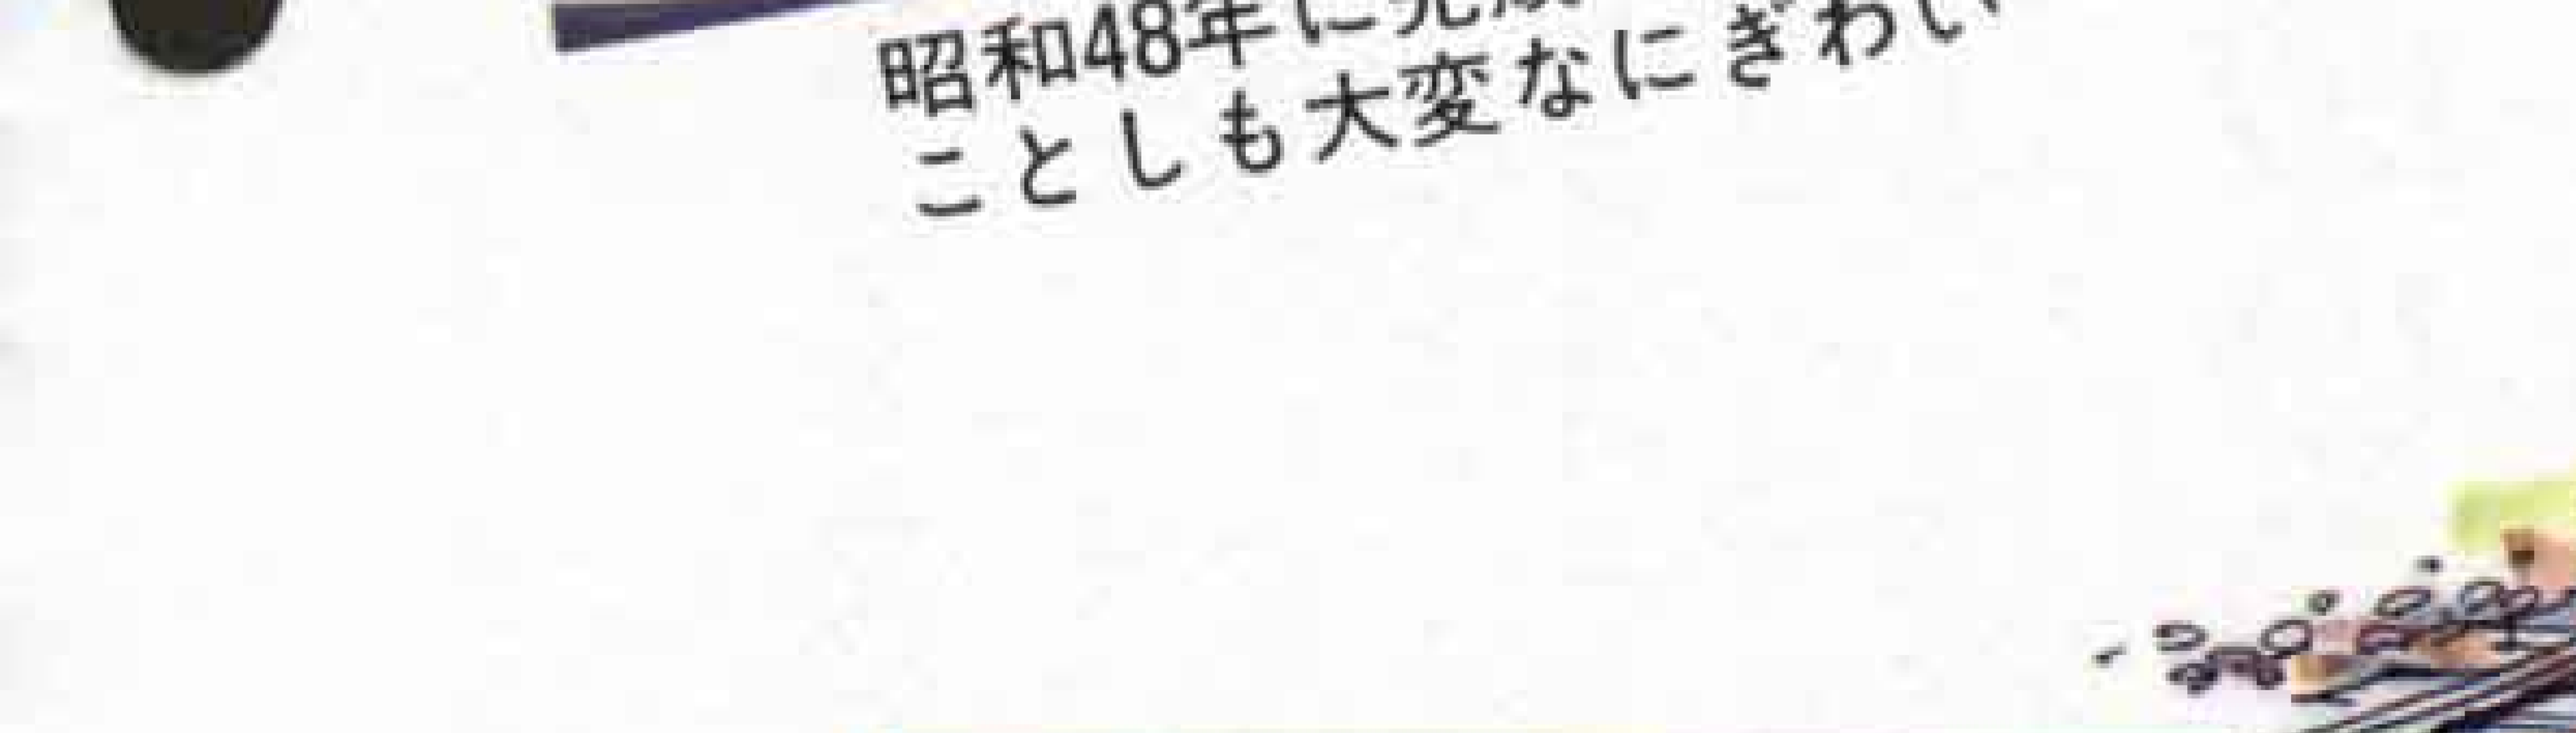 昭和48年に完成
ことしも大変なにぎわい